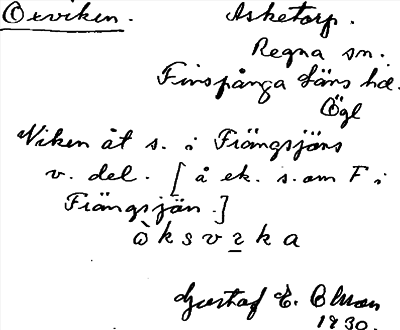 Oxviken. Asketorp.
Regna sn.
Finspånga läns hd.
Ögl
Viken åt s. i Frängsjöns
v. del. [å ek. s. om F i
Frängsjön.]
ò k s v ɪ k a
Gustaf E. Olsson
1930.